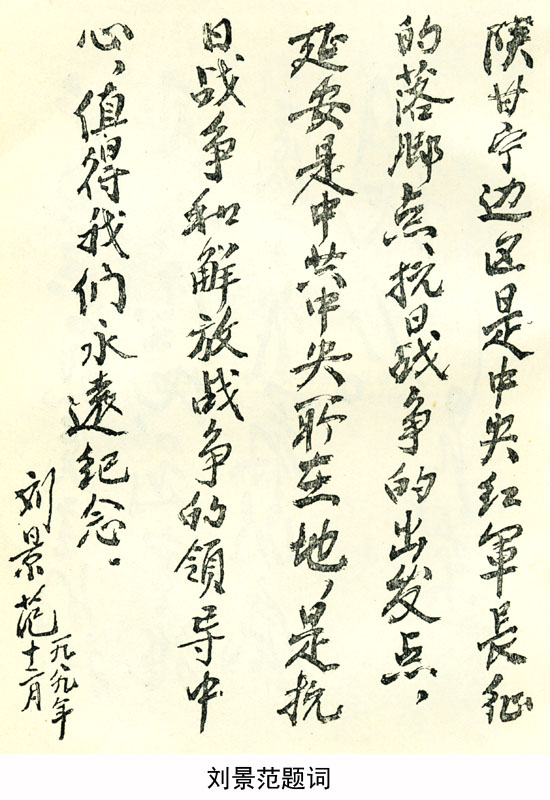 陕甘宁边区是中央红軍長征
的落脚点、抗日战争的出发点，
延安是中共中央所在地，是抗
日战争和解放战争的领导中
心，值得我们永遠紀念．
刘景范
一九八九年
十二月
刘景范题词